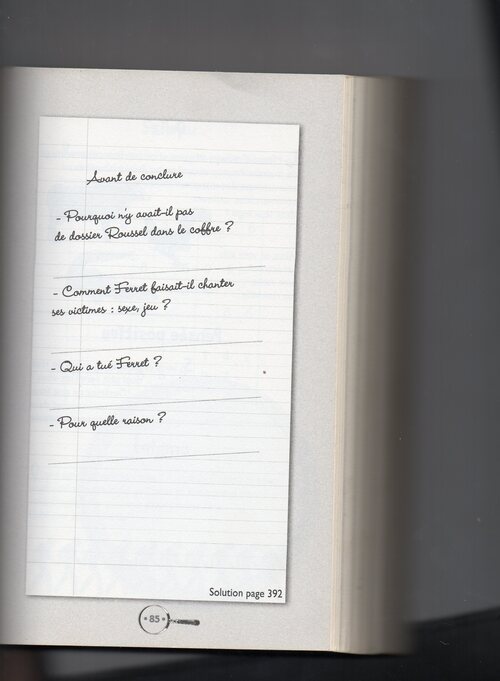 Avant de conclure
- Pourquoi n'y avait-il pas
de dossier Roussel dans le coffre ?
- Comment Ferret faisait-il chanter
ses victimes : sexe, jeu ?
- Qui a tué Ferret ?
- Pour quelle raison ?
Solution page 392
• 85 •